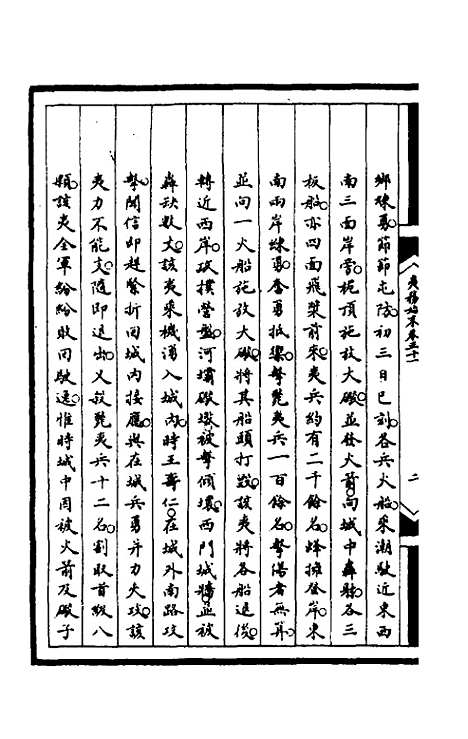 鄉練勇。節節屯防。初三日巳刻。各兵火船乘潮駛近東西
南三面岸旁。桅頂施放大礮。並發火箭。向城中轟擊。各三
板船。亦四面飛槳前來。夷兵約有二千餘名。蜂擁登岸。東
南兩岸練勇。奮勇抵禦。擊斃夷兵一百餘名。擊傷者無算。
並向一火船施放大礮。將其船頭打毀。該夷將各船退後。
轉近西岸。攻撲營盤。河壩礮墩。被擊傾壞。西門城牆。並被
轟缺數丈。該夷乘機湧入城內。時王壽仁。在城外南路攻
擊。聞信即趕緊折回城內接應。與在城兵勇并力夾攻。該
夷力不能支。隨即退出。又殺斃夷兵十二名。割取首級八
顆。該夷全軍紛紛敗回駛遠。惟時城中因被火箭及礮子
夷務始末卷五十一
二